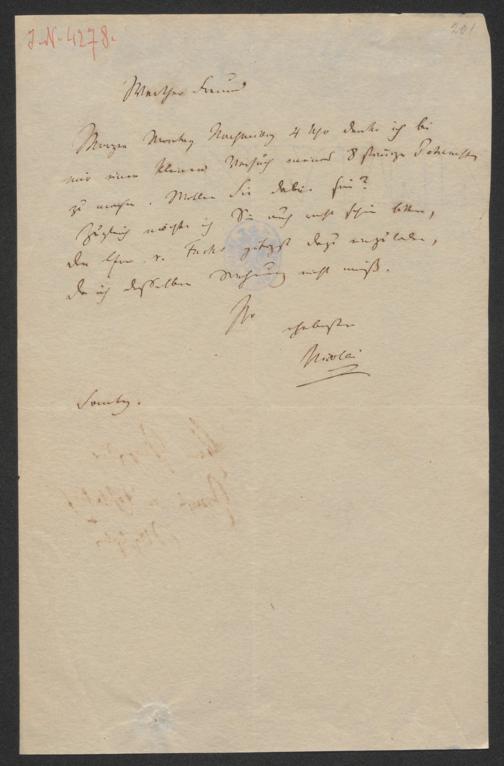 J.N. 4278.
201
Werther Freund
Morgen Montag Nachmittag 4 Uhr denke ich bei
mir einen kleinen Versuch meines 8 stimmigen
zu machen. Wollen Sie dabei sein?
Zugleich möchte ich Sie auch recht schön bitten,
den Hrn v. Fuchs gefälligst dazu einzuladen,
da ich desselben Wohnung nicht weiß.
Ihr
ergebenster
Nicolai
Sonntag.